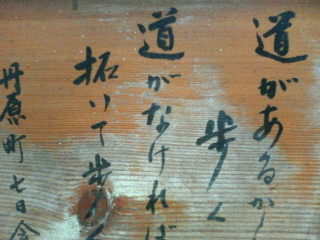 道があるから
歩く
道がなければ
拓いて歩く
丹原町七日会